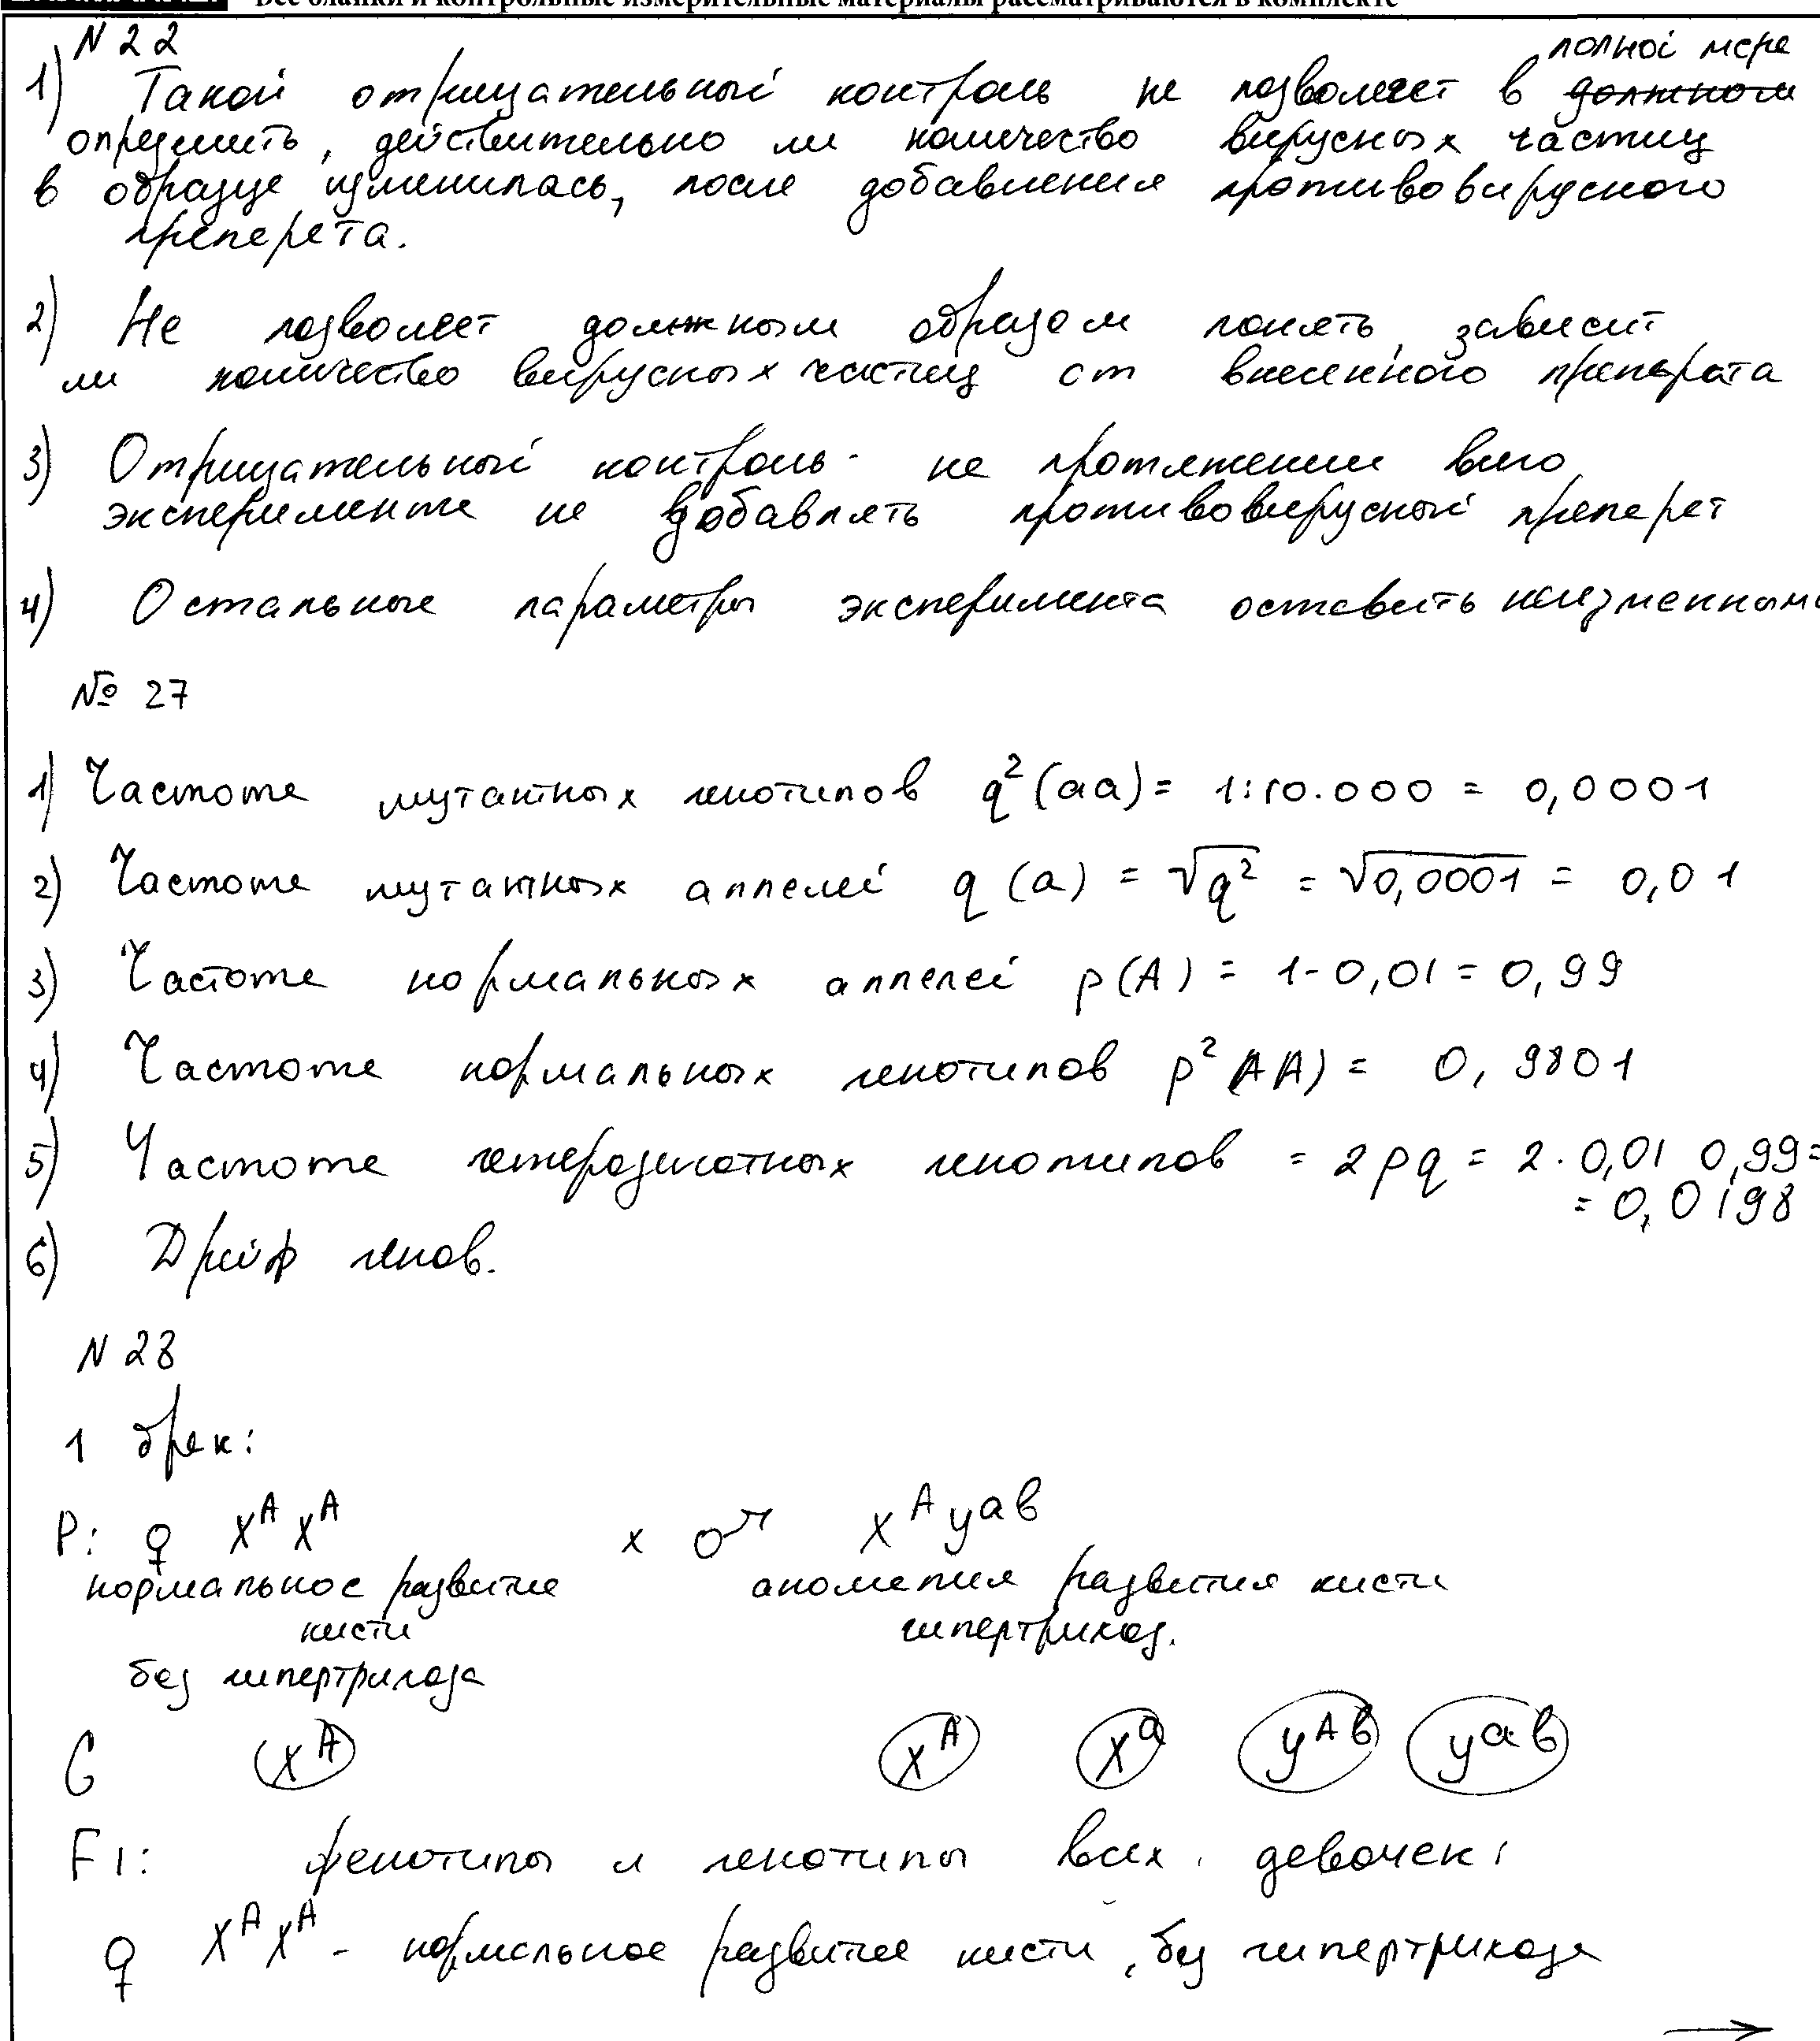 Все бланки и контрольные измерительные материалы рассматриваются в комплекте
N 22
полной мере
1) Такой отрицательный контроль не позволяет в должном
определить, действительно ли количество вирусных частиц
в образце изменилась, после добавления противовирусного
препарата.
2) Не позволяет должным образом понять, зависит
ли количество вирусных частиц от внесенного препарата
3) Отрицательный контроль - на протяжении всего
эксперимента не добавлять противовирусный препарат
4) Остальные параметры эксперимента оставить неизменными
№ 27
1) Частота мутантных генотипов q²(aa) = 1:10.000 = 0,0001
2) Частота мутантных аллелей q (a) = √q² = √0,0001 = 0,01
3) Частота нормальных аллелей p(A) = 1-0,01 = 0,99
4) Частота нормальных генотипов p²(AA) = 0,9801
5) Частота гетерозиготных генотипов = 2pq = 2·0,01 0,99=
= 0,0198
6) Дрейф генов.
N 28
1 брак:
P: ♀ X^A X^A x ♂ X^A Y^ав
нормальное развитие аномалия развития кисти
кисти гипертрихоз.
без гипертрихоза
G X^A X^A X^a Y^Ав Y^ав
F1: фенотипы и генотипы всех девочек:
♀ X^A X^A - нормальное развитие кисти, без гипертрихоза
→